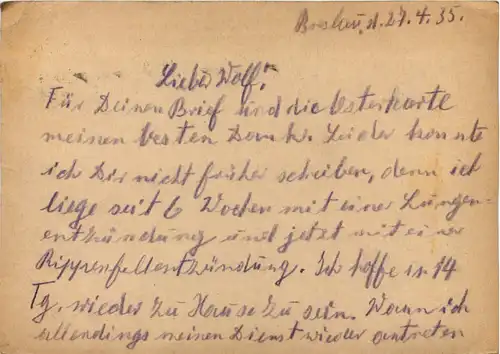 Breslau, d. 27.4.35.
Lieber Wolf!
Für Deinen Brief und die Osterkarte
meinen besten Dank. Leider konnte
ich Dir nicht früher schreiben, denn ich
liege seit 6 Wochen mit einer Lungen-
entzündung und jetzt mit einer
Rippenfellentzündung. Ich hoffe in 14
Tg. wieder zu Hause zu sein. Wann ich
allerdings meinen Dienst wieder antreten